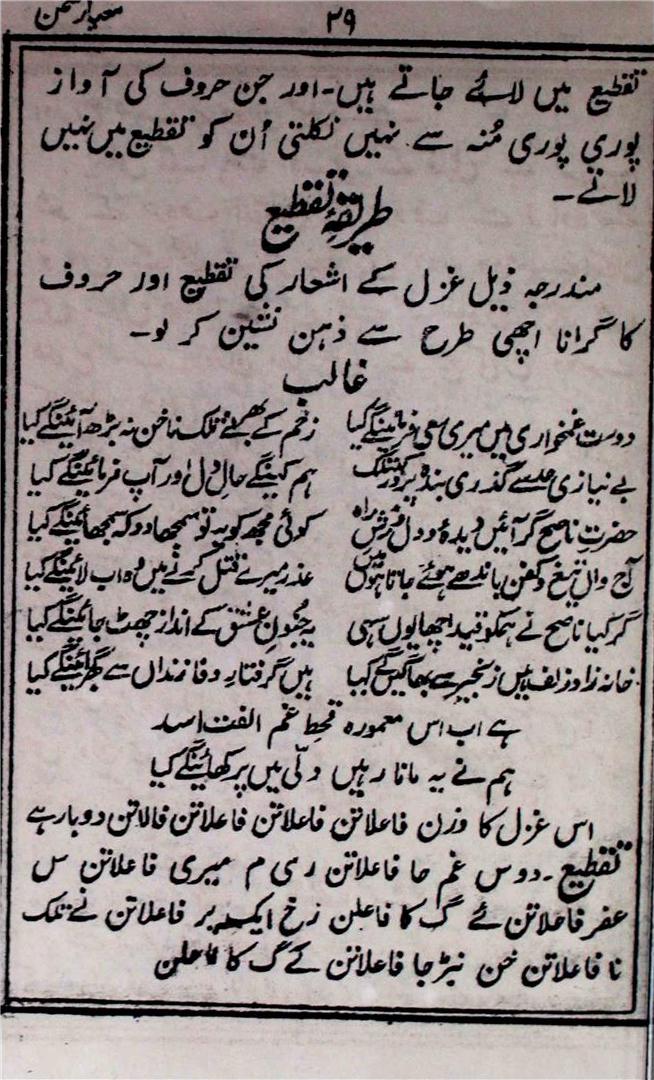 ۲۹
تقطیع میں لائے جاتے ہیں۔ اور جن حروف کی آواز
پوری پوری مُنہ سے نہیں نکلتی اُن کو تقطیع میں نہیں
لاتے۔
طریقۂ تقطیع
مندرجہ ذیل غزل کے اشعار کی تقطیع اور حروف
کا گرانا اچھی طرح سے ذہن نشین کر لو۔
غالب
دوست غمخواری میں میری سعی فرمائینگے کیا زخم کے بھرنے تلک ناخن نہ بڑھ آئینگے کیا
بے نیازی حد سے گذری بندہ پرور کب تلک ہم کہینگے حالِ دل اور آپ فرمائینگے کیا
حضرتِ ناصح گر آئیں دیدہ و دل فرشِ راہ کوئی مجھ کو یہ تو سمجھا دو کہ سمجھائینگے کیا
آج واں تیغ و کفن باندھے ہوئے جاتا ہوں میں عذر میرے قتل کرنے میں وہ اب لائینگے کیا
گر کیا ناصح نے ہمکو قید اچھا یوں سہی یہ جنونِ عشق کے انداز چھٹ جائینگے کیا
خانہ زادِ زلف ہیں زنجیر سے بھاگیں گے کیا ہیں گرفتارِ وفا زنداں سے گھبرائینگے کیا
ہے اب اس معمورہ قحطِ غم الفت اسد
ہم نے یہ مانا رہیں دلّی میں پر کھائینگے کیا
اس غزل کا وزن فاعلاتن فاعلاتن فاعلاتن فالاتن دوبار ہے
تقطیع۔ دوس غم حا فاعلاتن ری م میری فاعلاتن س
عفر فاعلاتن ئے گ کا فاعلن زخ ایکہ بر فاعلاتن نے تلک
نا فاعلاتن خن نبڑجا فاعلاتن کے گ کا فاعلن